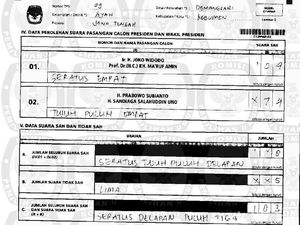 NOMOR TPS : 09
Kecamatan/Distrik : AYAH
Provinsi : JAWA TENGAH
Desa/Kelurahan : DEMANGSARI
Kabupaten/Kota : KEBUMEN
IV. DATA PEROLEHAN SUARA PASANGAN CALON PRESIDEN DAN WAKIL PRESIDEN
NOMOR DAN NAMA PASANGAN CALON
SUARA SAH
01.
Ir. H. JOKO WIDODO
Prof. Dr. (H.C) KH. MA'RUF AMIN
SERATUS EMPAT
104
02.
H. PRABOWO SUBIANTO
H. SANDIAGA SALAHUDDIN UNO
TUJUH PULUH EMPAT
X74
V. DATA SUARA SAH DAN TIDAK SAH
URAIAN
JUMLAH
A. JUMLAH SELURUH SUARA SAH
SERATUS TUJUH PULUH DELAPAN
178
B. JUMLAH SUARA TIDAK SAH
LIMA
XX5
C. JUMLAH SELURUH SUARA SAH DAN SUARA TIDAK SAH (A + B)
SERATUS DELAPAN PULUH TIGA
183